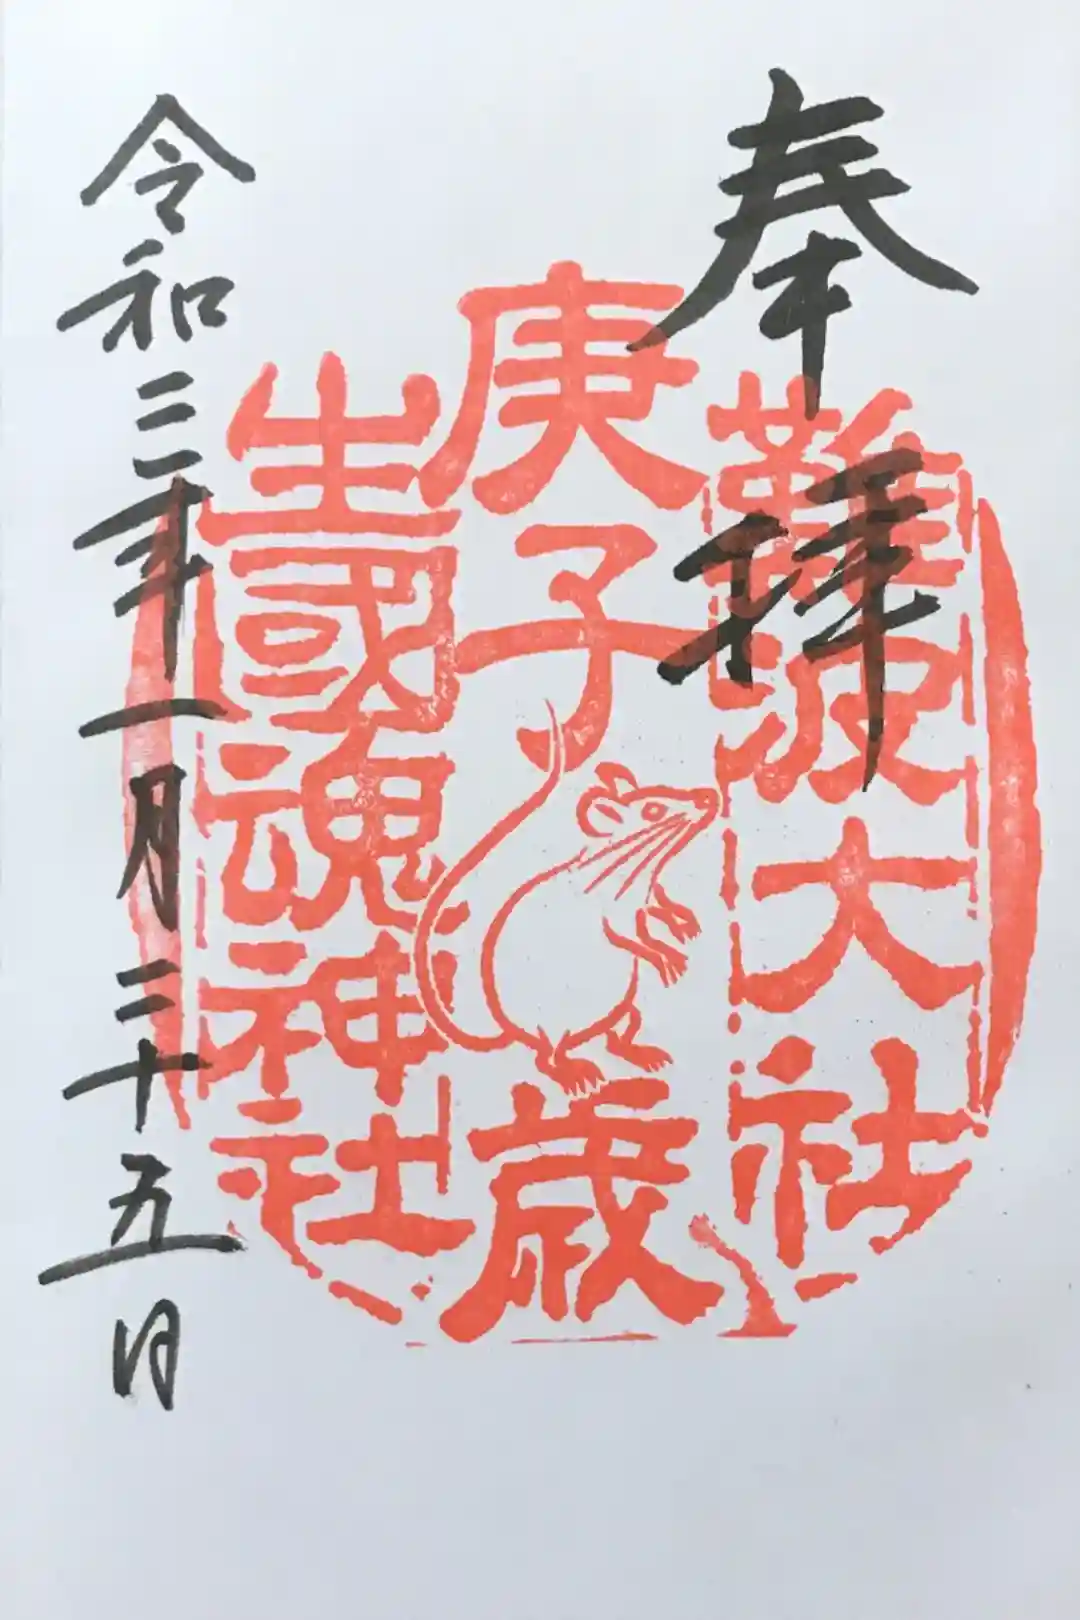 奉拝
難波大社
庚子歳
生國魂神社
令和三年一月二十五日